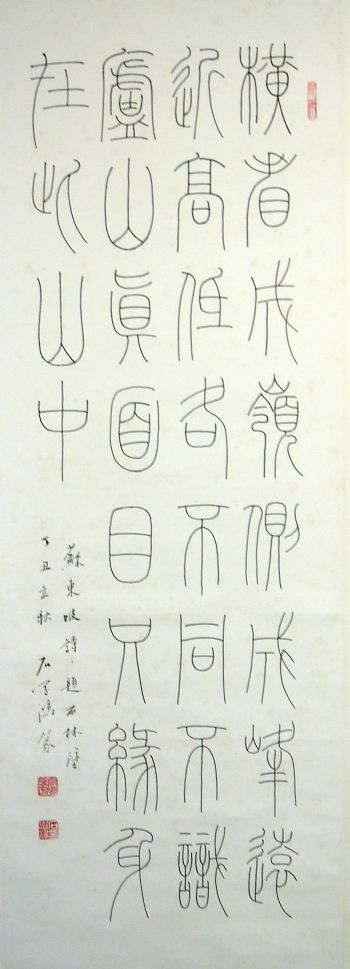 橫看成嶺側成峰遠
近高低各不同不識
盧山眞面目只緣身
在此山中
蘇東坡詩:題西林壁
丁丑立秋 石學鴻篆